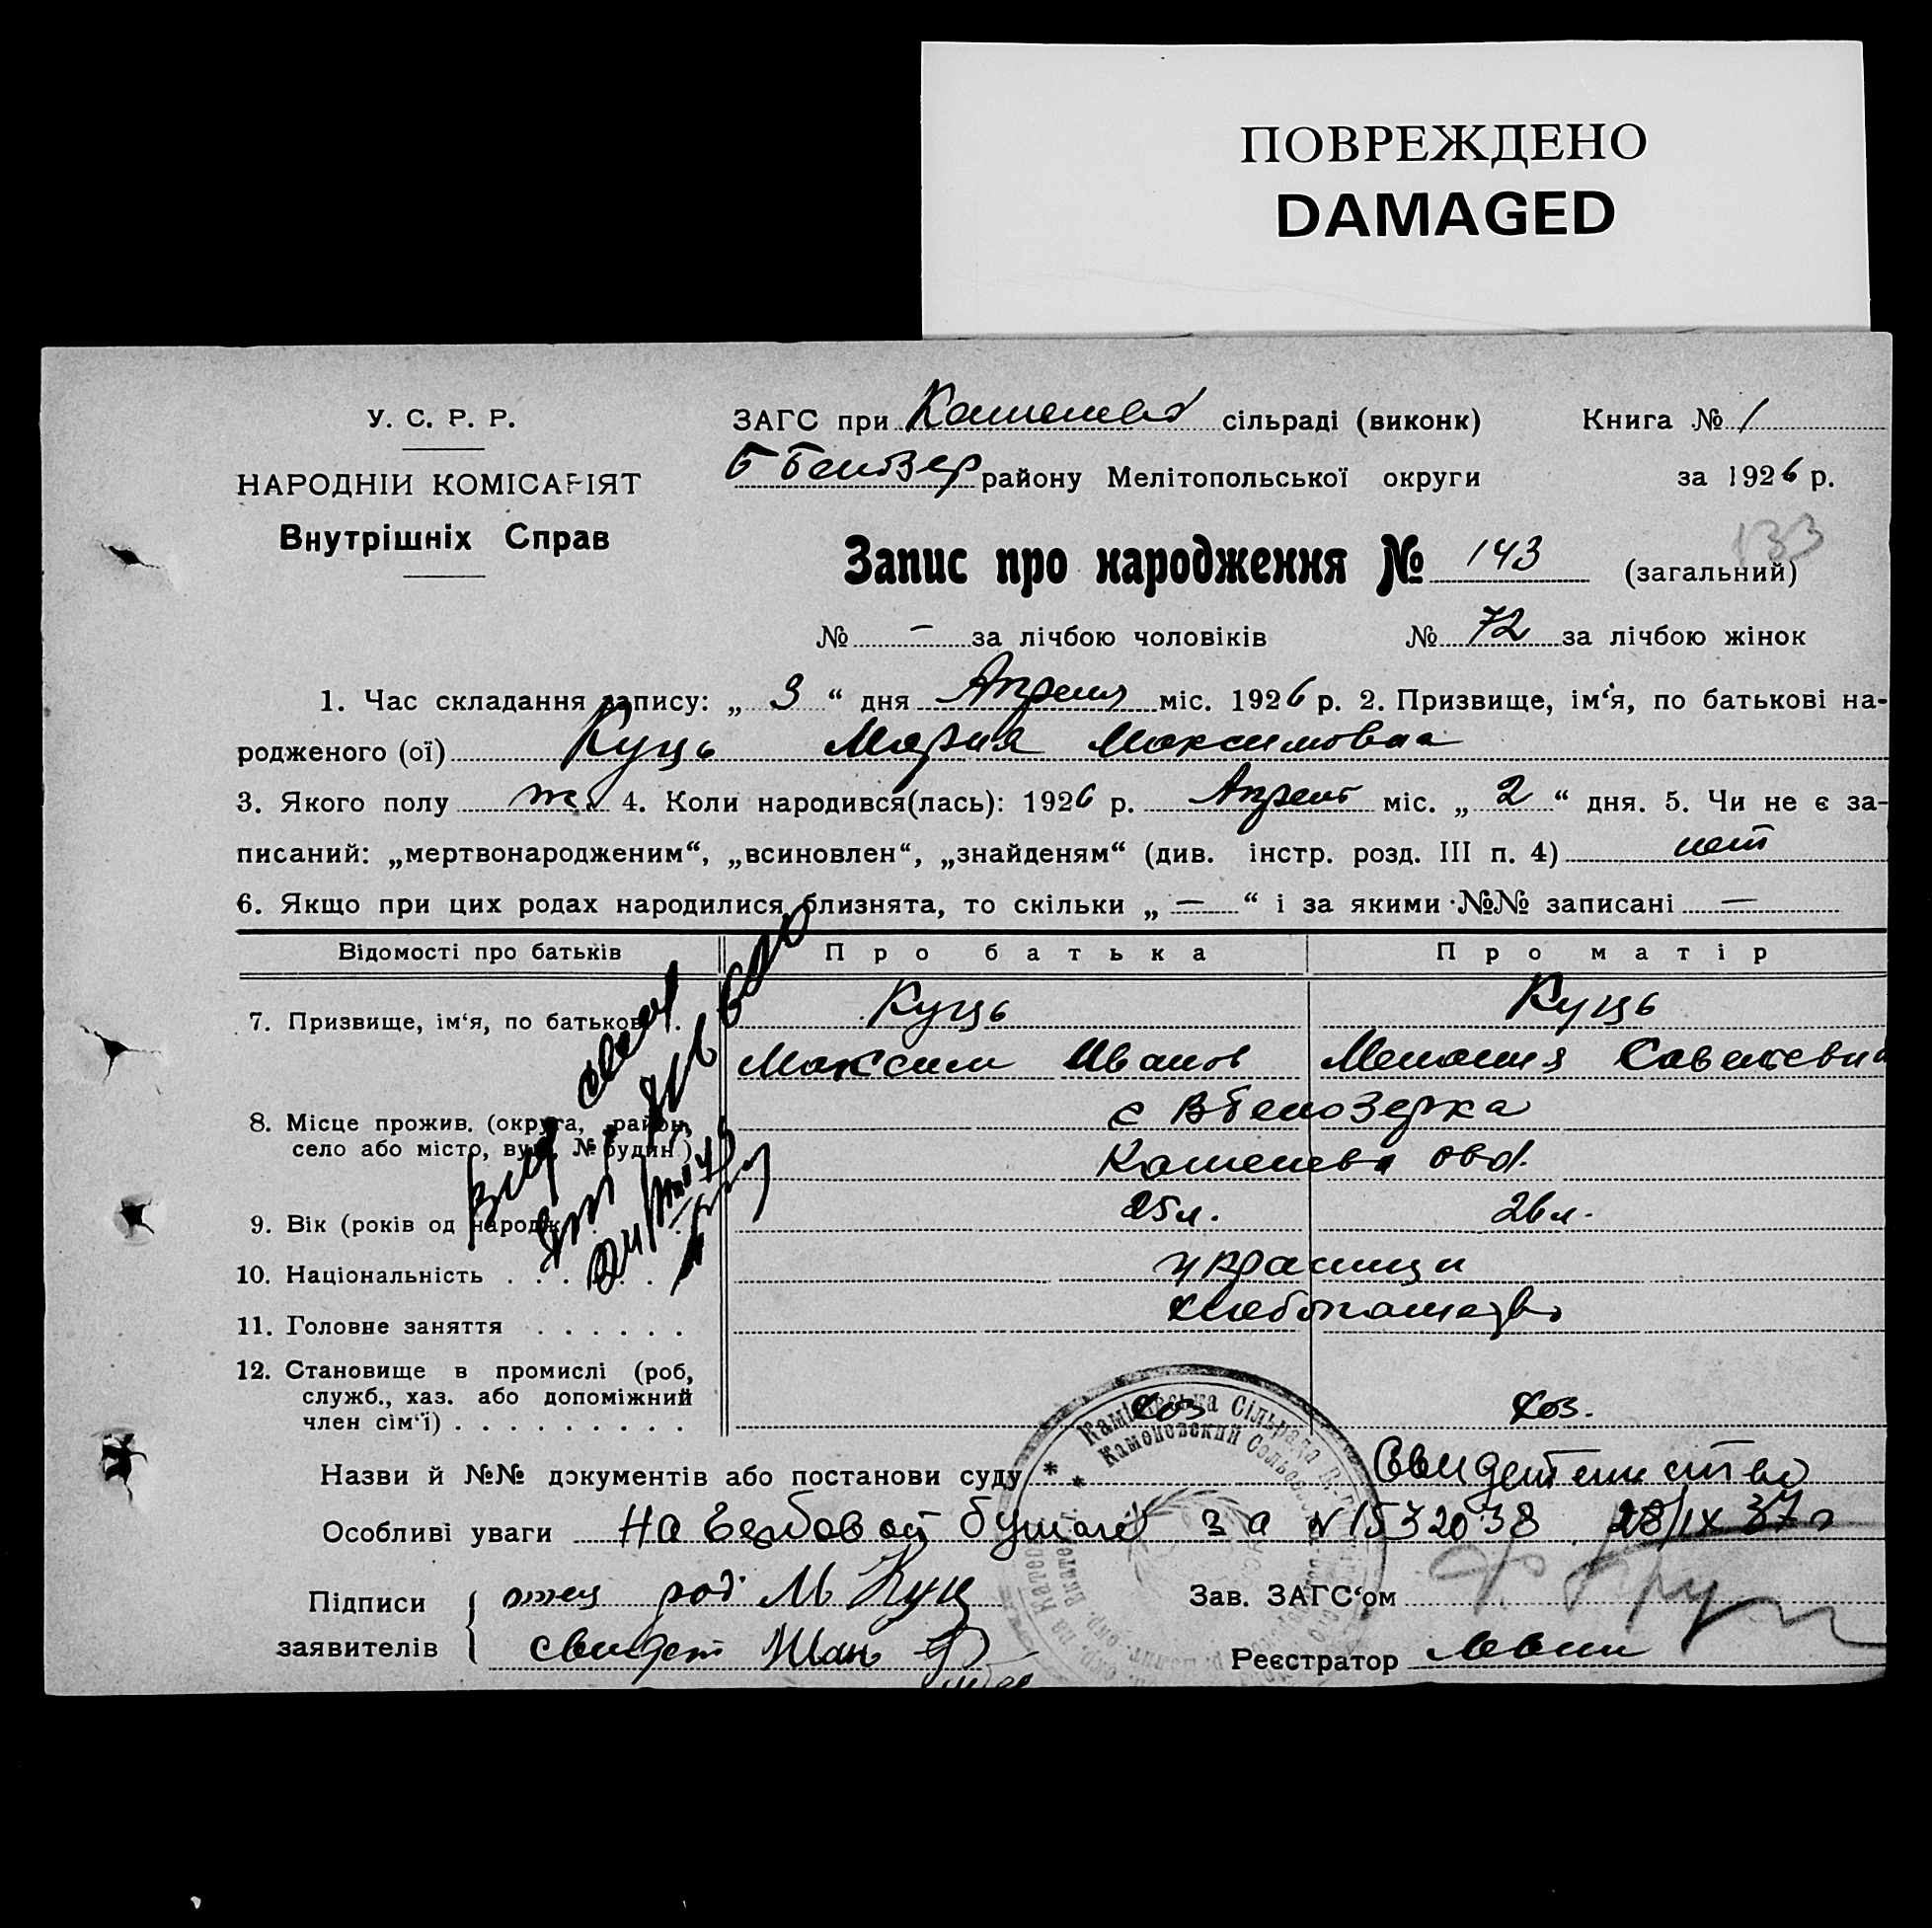 ПОВРЕЖДЕНО
DAMAGED
У. С. Р. Р.
НАРОДНІЙ КОМІСАРІЯТ
Внутрішніх Справ
ЗАГС при сільраді (виконк) Книга № 1
району Мелітопольської округи за 1926 р.
133
Запис про народження № 143 (загальний)
№ – за лічбою чоловіків № 72 за лічбою жінок
1. Час складання запису: „ 3 “ дня Апреля міс. 1926 р. 2. Призвище, ім‘я, по батькові на-
родженого (ої) Куць Мария Максимовна
3. Якого полу жен 4. Коли народився(лась): 1926 р. Апрель міс. „ 2 “ дня. 5. Чи не є за-
писаний: „мертвонародженим“, „всиновлен“, „знайденям“ (див. інстр. розд. III п. 4) нет
6. Якщо при цих родах народилися близнята, то скільки „ — “ і за якими №№ записані —
Відомості про батьків Про батька Про матір
7. Призвище, ім‘я, по батькові . Куць Куць
Максим Иванов Мелания Савельевна
8. Місце прожив. (округа, район, с ВБелозерка
село або місто, вул. № будин.)
9. Вік (років од народж. 25 л. 26 л.
10. Національність . . . . . . украинцы
11. Головне заняття . . . . . . хлебопашество
12. Становище в промислі (роб,
служб., хаз. або допоміжний
член сім‘ї) . . . . . . . . . хоз хоз.
Назви й №№ документів або постанови суду Свидетельство
Особливі уваги на гербовой бумаге за №1532038 28/IX 37 г
Підписи отец род. М Куц Зав. ЗАГС‘ом
заявителів свидет Реєстратор
* Кам'янська Сільрада
* Каменовский Сельсовет